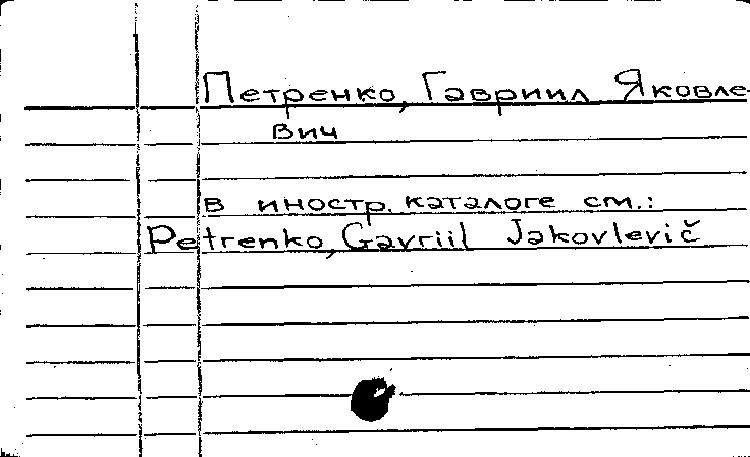 Петренко, Гавриил Яковле-
вич
в иностр. каталоге см.:
Petrenko, Gavriil Jakovlevič